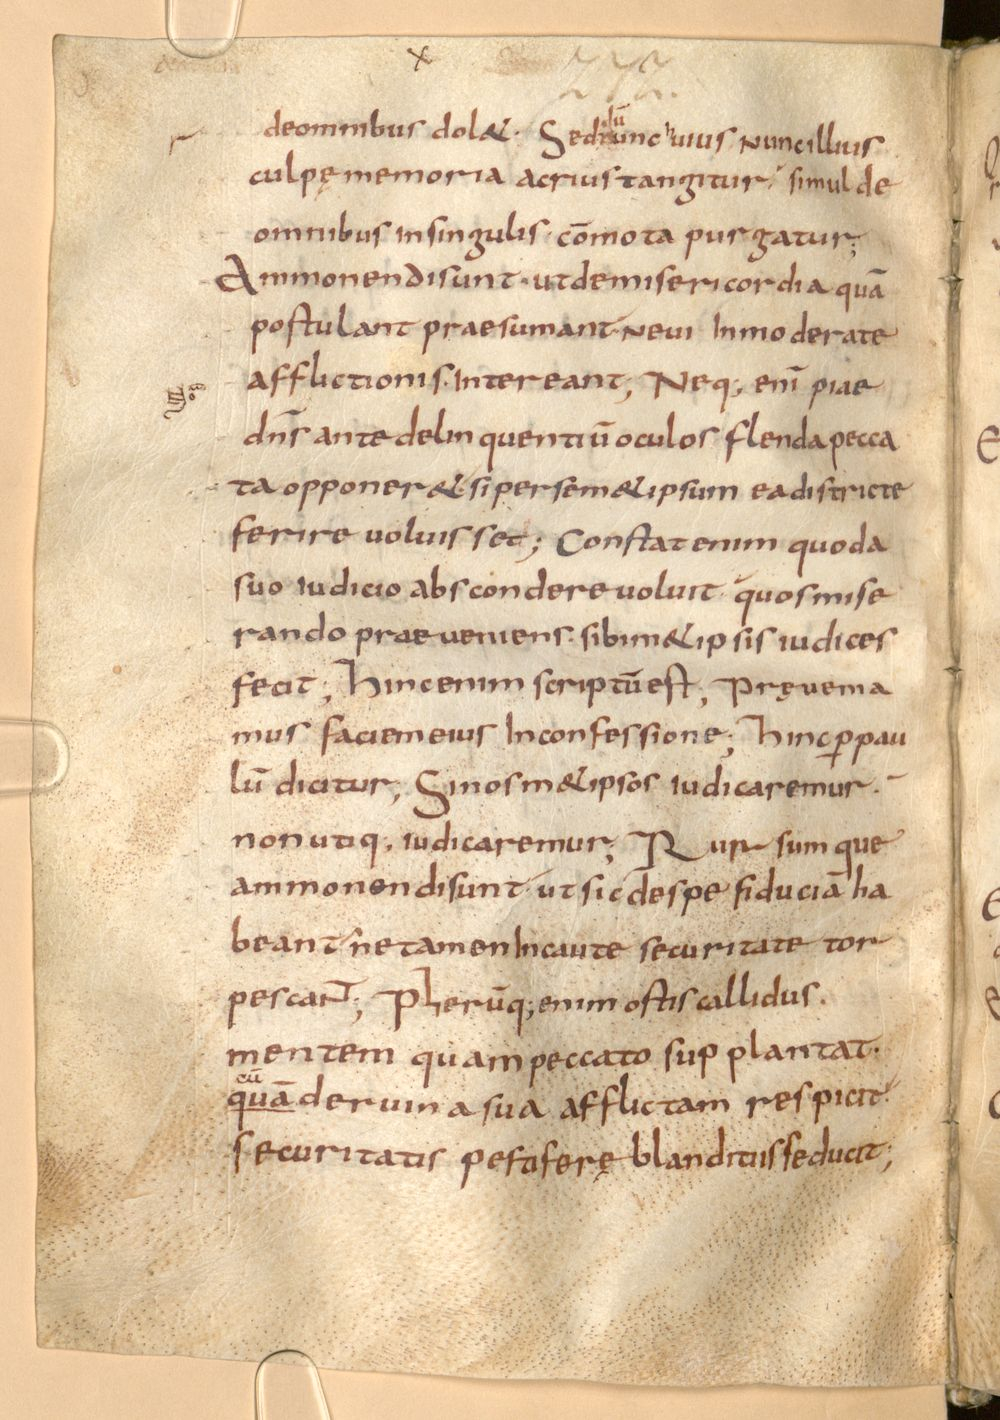 deomnibus dol&. Sed nunc huius nuncillius
dū
culpę memoria acrius tangitur, simul de
omnibus insingulis. cōmota purgatur;
Ammonendisunt. utdemisericordia quā
postulant praesumant. Nevi Inmoderate
afflictionis. Intereant; Neq; enī piae
dn̄s ante delinquentiū oculos flenda pecca
ta opponer& si persem&ipsum ea districte
ferire voluisset; Constat enim quod a
suo iudicio abscondere voluit. quos mise
rando praeveniens. sibim&ipsis iudices
fecit; Hinc enim scriptū est; Pręvenia
mus faciem eius Inconfessione; Hinc p̲ pau
lū dicitur; Si nosm&ipsos iudicaremur.
non utiq. iudicaremur; Rursumque
ammonendisunt. ut sic despe fiduciā ha
beant ne tamen Incaute securitate tor
pescant; Plerūq; enim ostis callidus.
mentem quam peccato supplantat.
cū
quā de ruina sua afflictam respicit.
securitatis pestiferę blanditiis seducit;